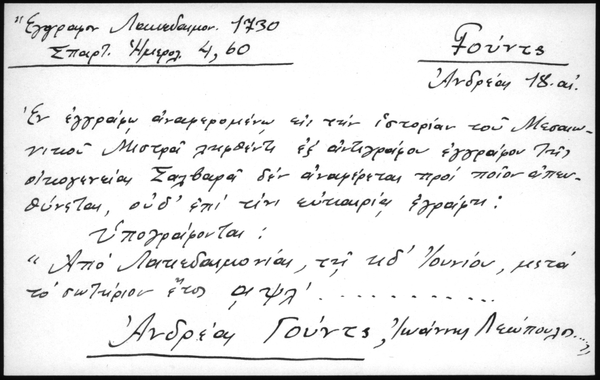 "Ἔγγραφον Λακεδαιμον. 1730
Σπαρτ. Ἡμερολ. 4, 60
Γούντς
Ἀνδρέας 18. αἰ.
Ἐν ἐγγράφῳ ἀναφερομένῳ εἰς τὴν ἱστορίαν τοῦ Μεσαιω-
νικοῦ Μιστρᾶ ληφθέντι ἐξ ἀντιγράφου ἐγγράφου τῆς
οἰκογενείας Σαλβαρᾶ δὲν ἀναφέρεται πρὸς ποῖον ἀπευ-
θύνεται, οὐδ' ἐπὶ τίνι εὐκαιρίᾳ ἐγράφη:
Ὑπογράφονται:
"Ἀπὸ Λακεδαιμονίας, τῇ κδ' Ἰουνίου, μετὰ
τὸ σωτήριον ἔτος ͵αψλ' ..........
Ἀνδρέας Γούντς, Ἰωάννης Λεώπουλος...",